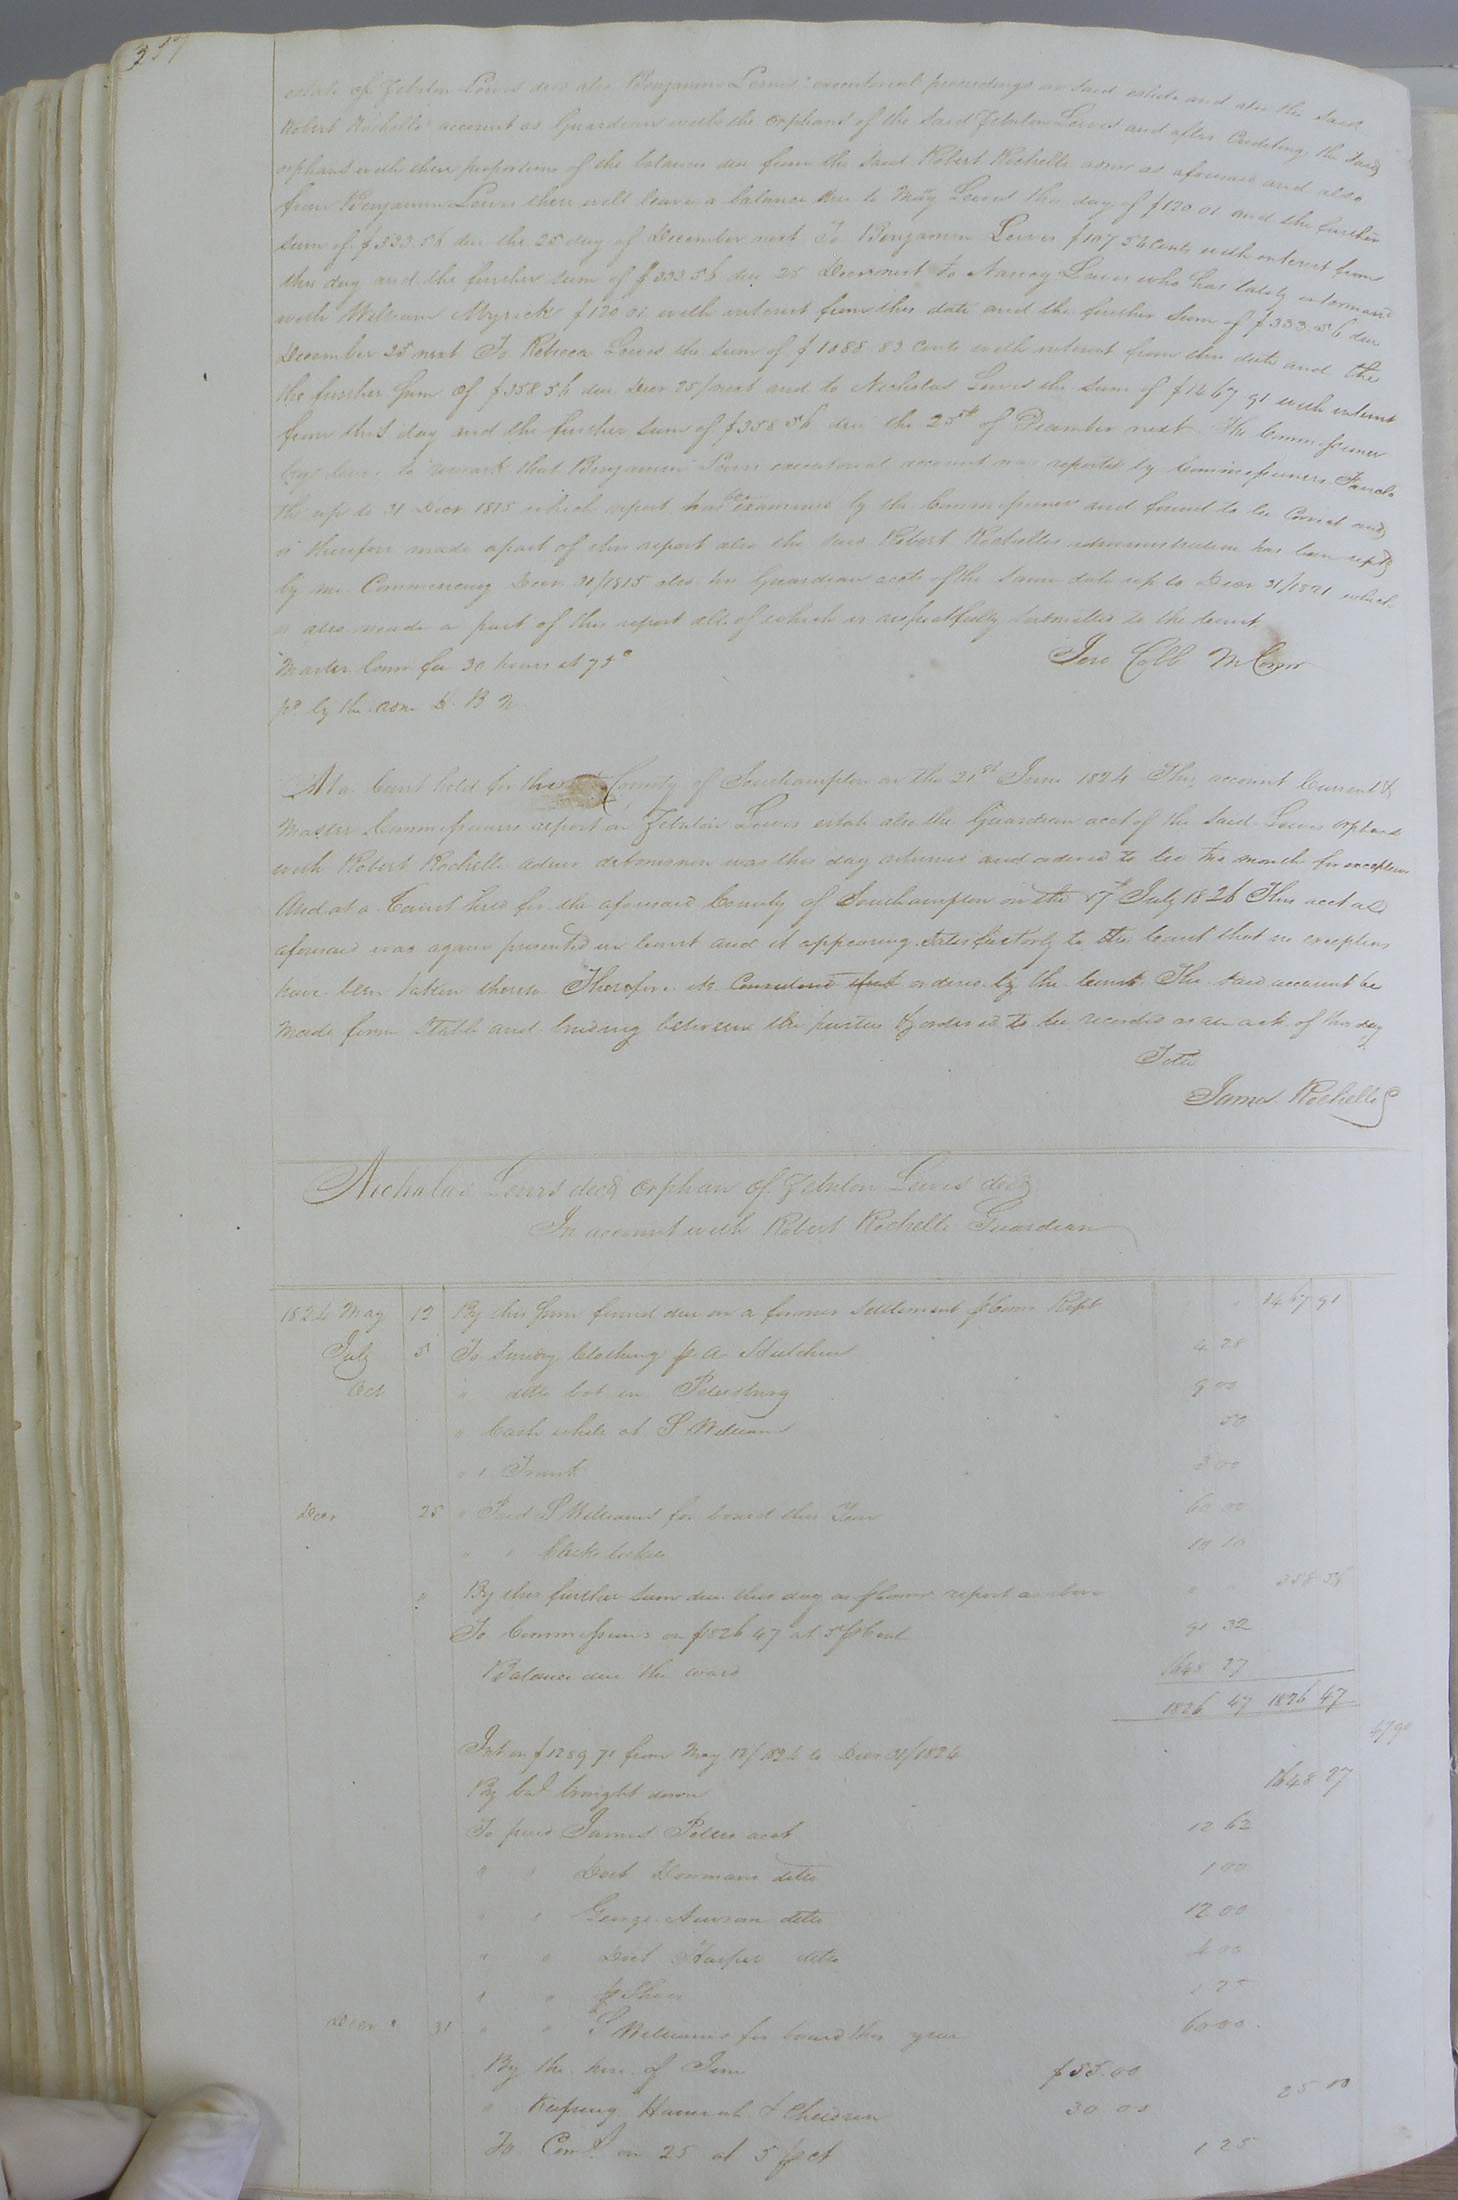 357
estate of Zebulon Lewis decd also Benjamin Lewis' executorial proceedings on said estate and also the said
Robert Rochelle account as Guardian with the orphans of the said Zebulon Lewis and after Crediting the said
orphans with their proportions of the balance due from the said Robert Rochelle admr as aforesaid and also
from Benjamin Lewis there will leave a balance due to Lewis this day of $120 01 and the further
sum of $333.56 due the 25 day of December next To Benjamin Lewis $107 54 Cents with interest from
this day and the further sum of $333 56 due 25 Decr next To Nancy Lewis who has lately intermar
with William Myrick $120 01 with interest from this date and the further sum of $333.56 due
December 25 next To Rebecca Lewis the sum of $1088.83 Cents with interest from this date and the
the further Sum of $358 56 due Decr 25/next and to Nicholas Lewis the Sum of $1467 91 with interest
from this day and the further sum of $358 56 due the 25th of December next. The Commissioner
begs leave to remark that Benjamin Lewis executorial account was reported by Commissioners
up to 31 Decr 1815 which report has been examined by the Commissioner and found to be Correct and
is therefore made apart of this report also the said Robert Rochelles administration has been
by me Commencing Decr 31/1815 also his Guardian accts of the same date up to Decr 31/1821 which
is also made a part of this report all of which is respectfully submitted to the Court
Master Comr fee 30 hours at 75c Cobb M Comr
pd by the adm

At a Court held for the County of Southampton on the 21st June 1824 This account Current &
Master Commissioners report on Zebulon Lewis estate also the Guardian acct of the said Lewis orphans
with Robert Rochelle was this day returned and ordered to lie two months for exceptions
And at a Court held for the aforesaid County of Southampton on the 17th July 1826 This acct as
aforesaid was again presented in Court and it appearing satisfactorily to the Court that no exceptions
have been taken thereto Therefore its Considered that ordered by the Court. The said account be
made firm stable and binding between the parties & ordered to be recorded as an act of this day
Teste
James Rochelle C

Nicholas Lewis decd orphan of Zebulon Lewis decd
In account with Robert Rochelle Guardian

1824 May 12 By this Sum found due on a former Settlement Comr Rept " 1467 91
July 5 To Sundry Clothing p A 4 28
Oct " ditto bot in Petersburg 9 00
" Cash while at S Williams 50
" " Trunk 3 00
Decr 25 " Paid S Williams for board this Year 60 00
" " Clerks tickets 10 10
" By this further sum due this day as p Comr report as above " 358 56
To Commissions on $1826 47 at 5 p Cent 91 32
Balance due the ward 1648 27
1826 47 1826 47
Int on $1289 71 from May 12/1824 to Decr 31/1824 47 90
By bal brought down 1648 27
To paid James Peters acct 12 62
" " Doct ditto 1 00
" " George Newsom ditto 12 00
" " Doct Harper ditto 4 00
" " p Shoes 1 25
Decr 31 " " S Williams for board this year 60 00
By the hire of Jim $55.00
" Keeping Hannah & Children 30 00 25 00
To Coms on 25 at 5 p ct 1 25